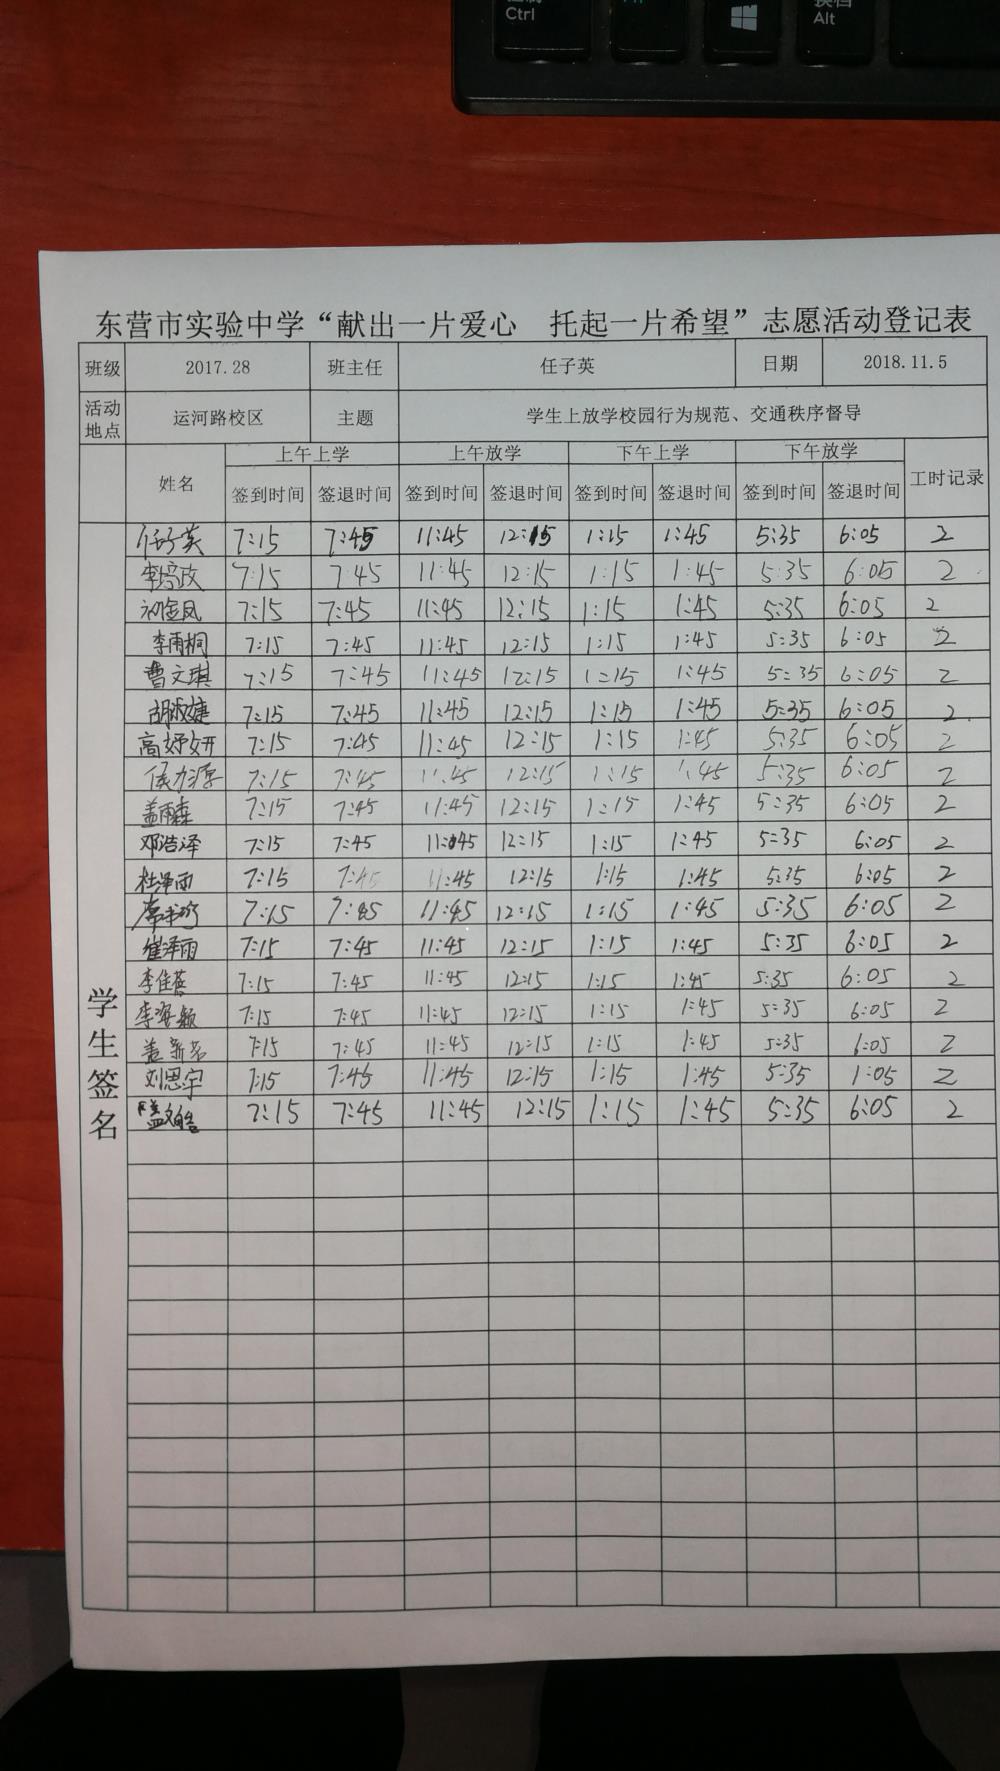 Ctrl
Alt
东营市实验中学“献出一片爱心 托起一片希望”志愿活动登记表
班级 2017.28 班主任 任子英 日期 2018.11.5
活动地点 运河路校区 主题 学生上放学校园行为规范、交通秩序督导
姓名 上午上学 上午放学 下午上学 下午放学 工时记录
签到时间 签退时间 签到时间 签退时间 签到时间 签退时间 签到时间 签退时间
学生签名
任子英 7:15 7:45 11:45 12:15 1:15 1:45 5:35 6:05 2
李培政 7:15 7:45 11:45 12:15 1:15 1:45 5:35 6:05 2
初金凤 7:15 7:45 11:45 12:15 1:15 1:45 5:35 6:05 2
李雨桐 7:15 7:45 11:45 12:15 1:15 1:45 5:35 6:05 2
曹文琪 7:15 7:45 11:45 12:15 1:15 1:45 5:35 6:05 2
胡淑婕 7:15 7:45 11:45 12:15 1:15 1:45 5:35 6:05 2
高妤妍 7:15 7:45 11:45 12:15 1:15 1:45 5:35 6:05 2
侯力源 7:15 7:45 11:45 12:15 1:15 1:45 5:35 6:05 2
盖雨森 7:15 7:45 11:45 12:15 1:15 1:45 5:35 6:05 2
邓浩泽 7:15 7:45 11:45 12:15 1:15 1:45 5:35 6:05 2
杜泽雨 7:15 7:45 11:45 12:15 1:15 1:45 5:35 6:05 2
7:15 7:45 11:45 12:15 1:15 1:45 5:35 6:05 2
崔泽雨 7:15 7:45 11:45 12:15 1:15 1:45 5:35 6:05 2
李佳蓓 7:15 7:45 11:45 12:15 1:15 1:45 5:35 6:05 2
李海颖 7:15 7:45 11:45 12:15 1:15 1:45 5:35 6:05 2
盖新茗 7:15 7:45 11:45 12:15 1:15 1:45 5:35 6:05 2
刘思宇 7:15 7:45 11:45 12:15 1:15 1:45 5:35 1:05 2
7:15 7:45 11:45 12:15 1:15 1:45 5:35 6:05 2